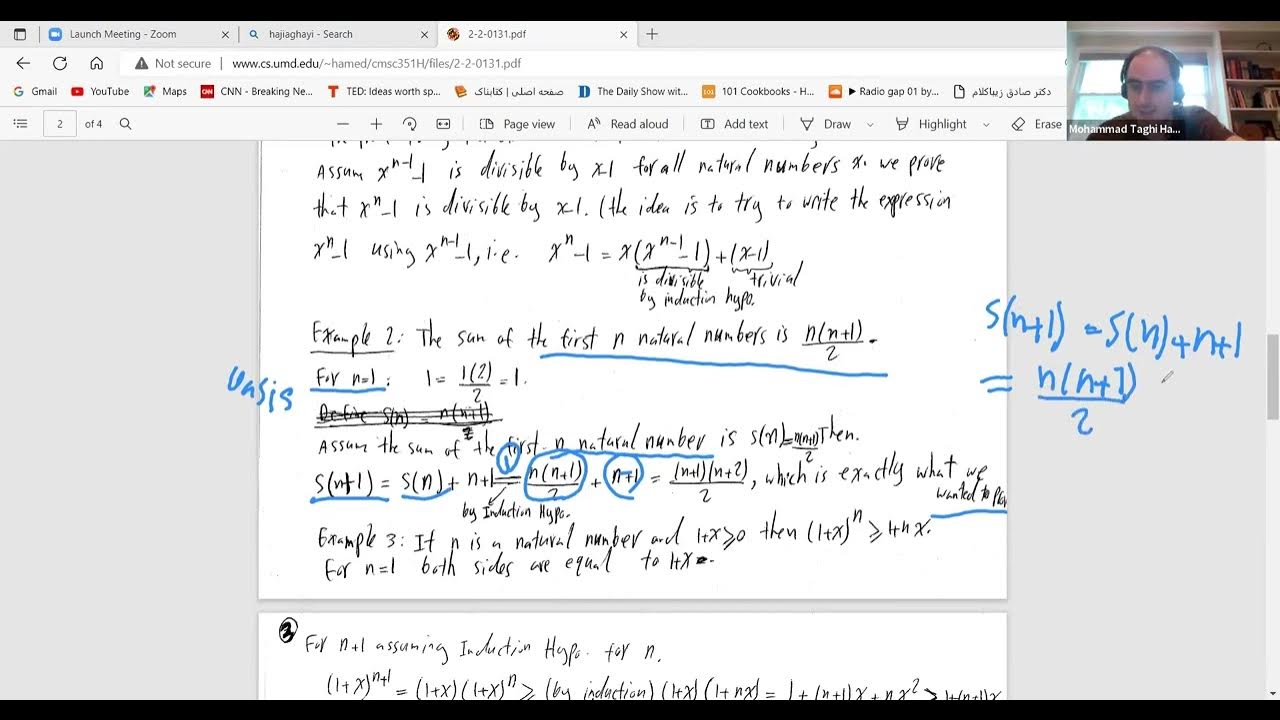 Launch Meeting - Zoom
hajiaghayi - Search
2-2-0131.pdf
Not secure | www.cs.umd.edu/~hamed/cmsc351H/files/2-2-0131.pdf
Gmail YouTube Maps CNN - Breaking Ne... TED: Ideas worth sp... صفحه اصلی | کتابناک The Daily Show wit... 101 Cookbooks - H... Radio gap 01 by... دکتر صادق زیباکلام
2 of 4 Page view Read aloud Add text Draw Highlight Erase
Mohammad Taghi Ha...
Assum xⁿ⁻¹-1 is divisible by x-1 for all natural numbers x. we prove
that xⁿ-1 is divisible by x-1. (the idea is to try to write the expression
xⁿ-1 using xⁿ⁻¹-1, i.e. xⁿ-1 = x(xⁿ⁻¹-1)+(x-1)
is divisible trivial
by induction hypo.
Example 2: The sum of the first n natural numbers is n(n+1)/2.
For n=1: 1 = 1(2)/2 = 1.
Define S(n) = n(n+1)/2
Assum the sum of the first n natural number is S(n)=n(n+1)/2 Then.
S(n+1) = S(n) + n+1 = n(n+1)/2 + n+1 = (n+1)(n+2)/2, which is exactly what we
wanted to
by Induction Hypo.
Example 3: If n is a natural number and 1+x≥0 then (1+x)ⁿ ≥ 1+nx.
For n=1 both sides are equal to 1+x.
basis
1
S(n+1) = S(n)+n+1
= n(n+1)/2
3
For n+1 assuming Induction Hypo. for n.
(1+x)ⁿ⁺¹ = (1+x)(1+x)ⁿ ≥ (by induction) (1+x)(1+nx) = 1+(n+1)x+nx² ≥ 1+(n+1)x